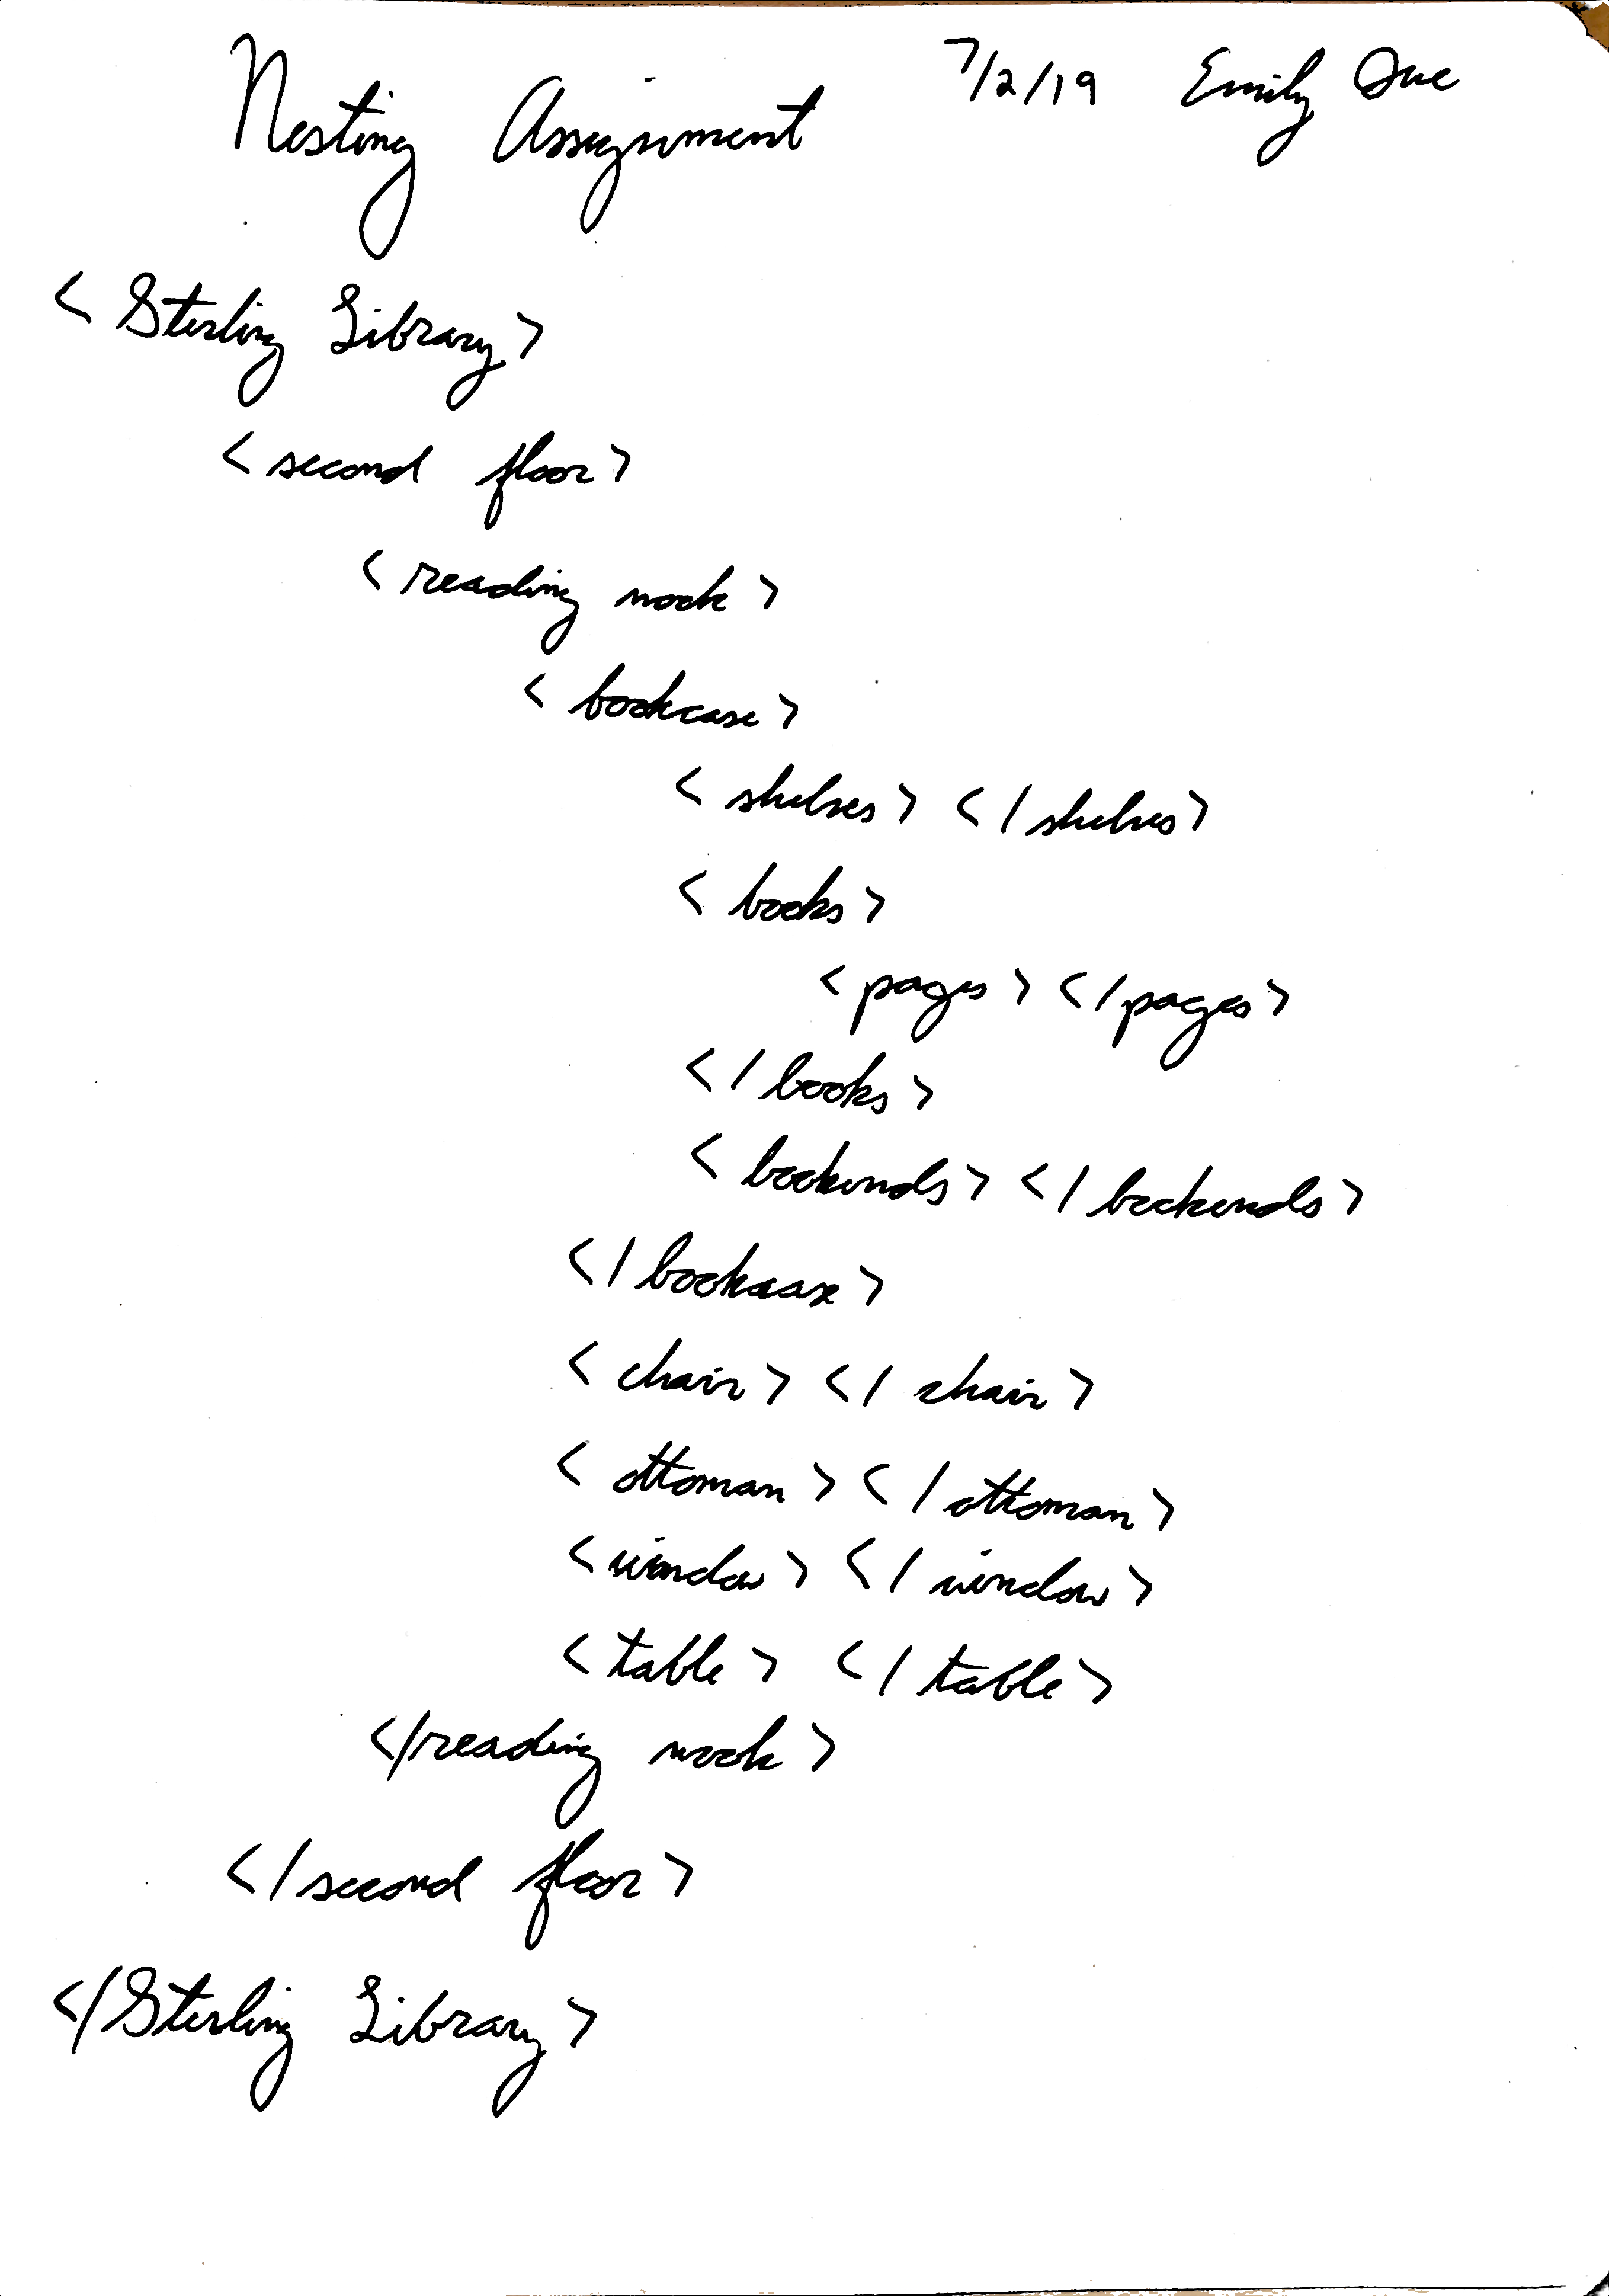 Nesting Assignment 7/2/19 Emily Sue
< Sterling Library >
< second floor >
< reading nook >
< bookcase >
< shelves > </ shelves >
< books >
< pages > </ pages >
</ books >
< bookends > </ bookends >
</ bookcase >
< chair > </ chair >
< ottoman > </ ottoman >
< window > </ window >
< table > </ table >
</reading nook >
</ second floor >
</Sterling Library >